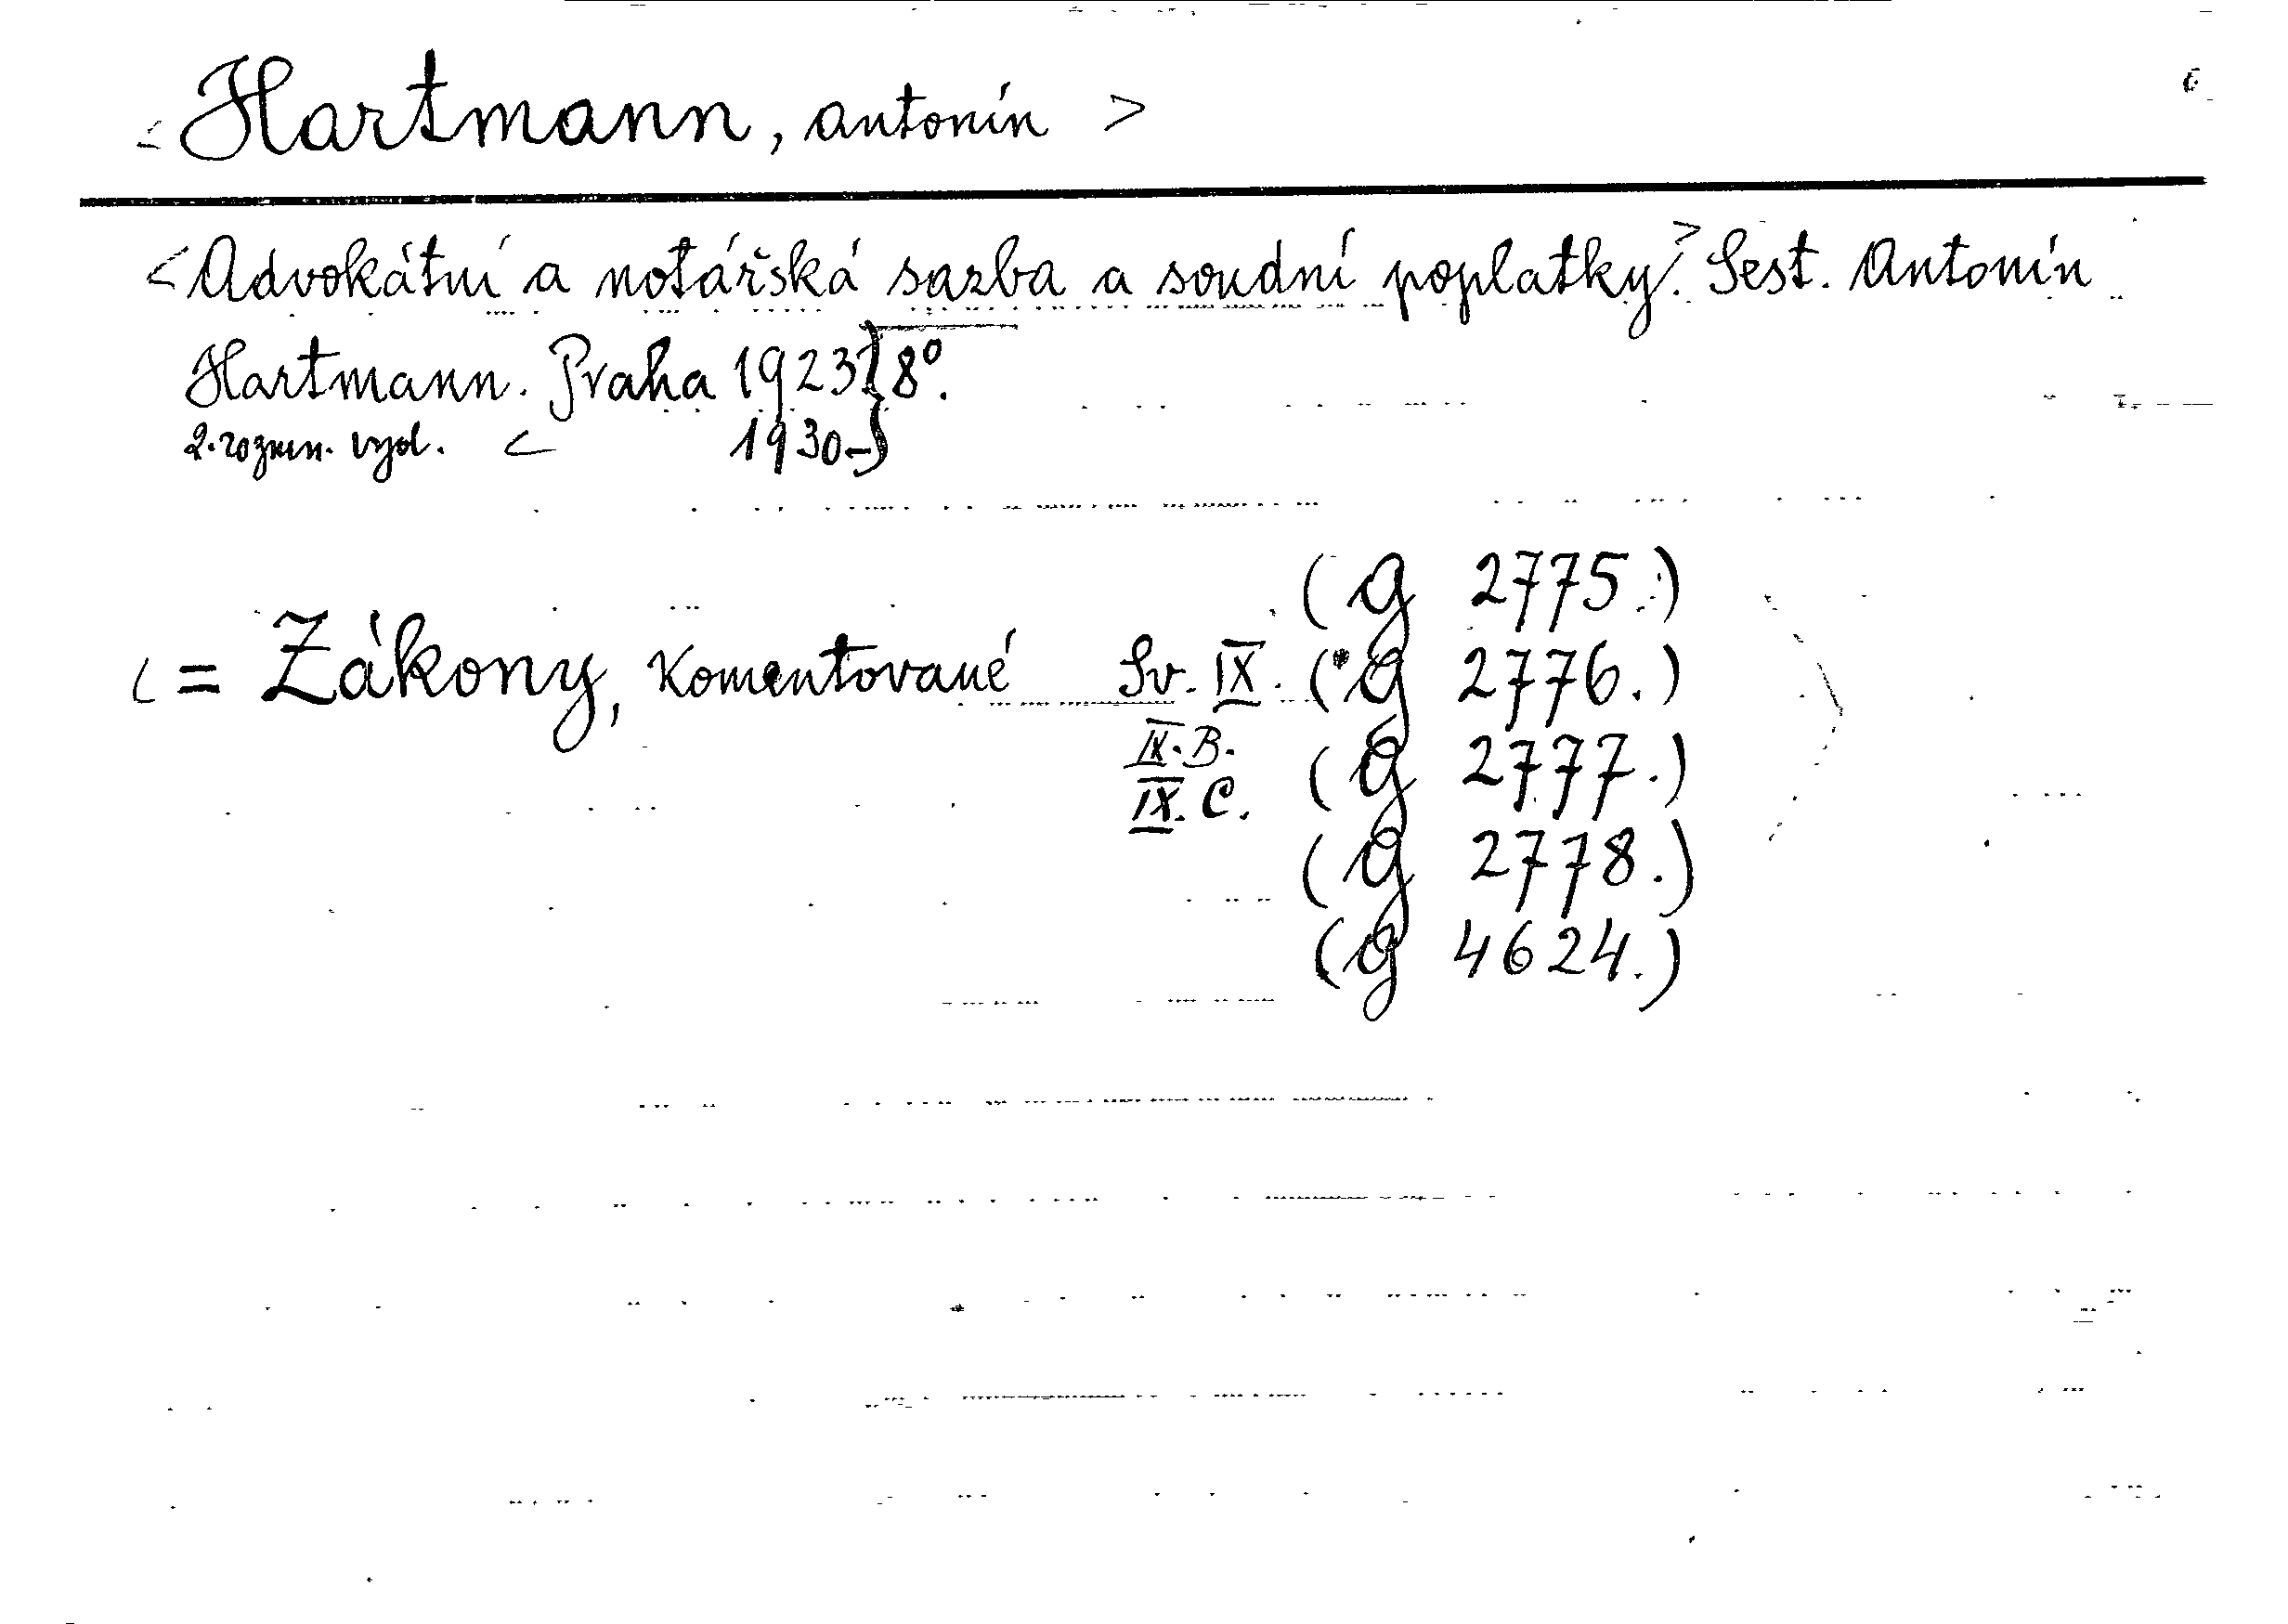 < Hartmann, Antonín >
< Advokátní a notářská sazba a soudní poplatky. > Sest. Antonín
Hartmann. Praha 1923 } 8°.
2. rozmn. vyd. < 1930- }
(G 2775.)
< = Zákony, komentované Sv. IX. (*G 2776.)
IX. B. (G 2777.)
IX. C.
(G 2778.)
(G 4624.)